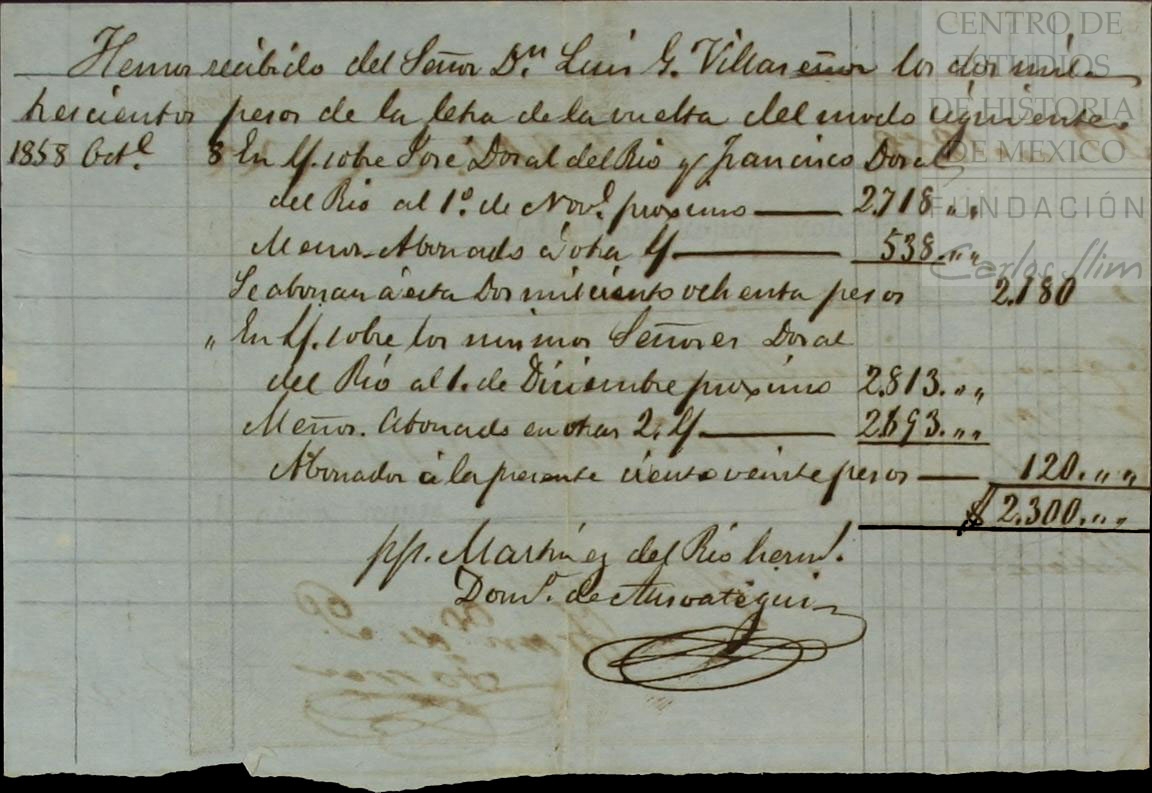 CENTRO DE
ESTUDIOS
DE HISTORIA
DE MEXICO
FUNDACIÓN
Carlos Slim
Hemos recibido del Señor Dn. Luis G. Villaseñor los dos mil
trescientos pesos de la letra de la vuelta del modo siguiente.
1858 Oct.e 8 En Lf. sobre José Doral del Rio y Francisco Doral
del Rio al 1º. de Nov.e proximo — 2.718 „ „
Menos Abonado á otra Lf — 538. „ „
Se abonan á esta Dos mil ciento ochenta pesos 2.180
„ En Lf. sobre los mismos Señores Doral
del Rio al 1. de Diciembre proximo 2.813. „ „
Menos. Abonado en otras 2. Lf — 2.693. „ „
Abonados á la presente ciento veinte pesos — 120. „ „
$ 2.300. „ „
pp. Martinez del Rio herm.s
Dom.o de Ansoategui